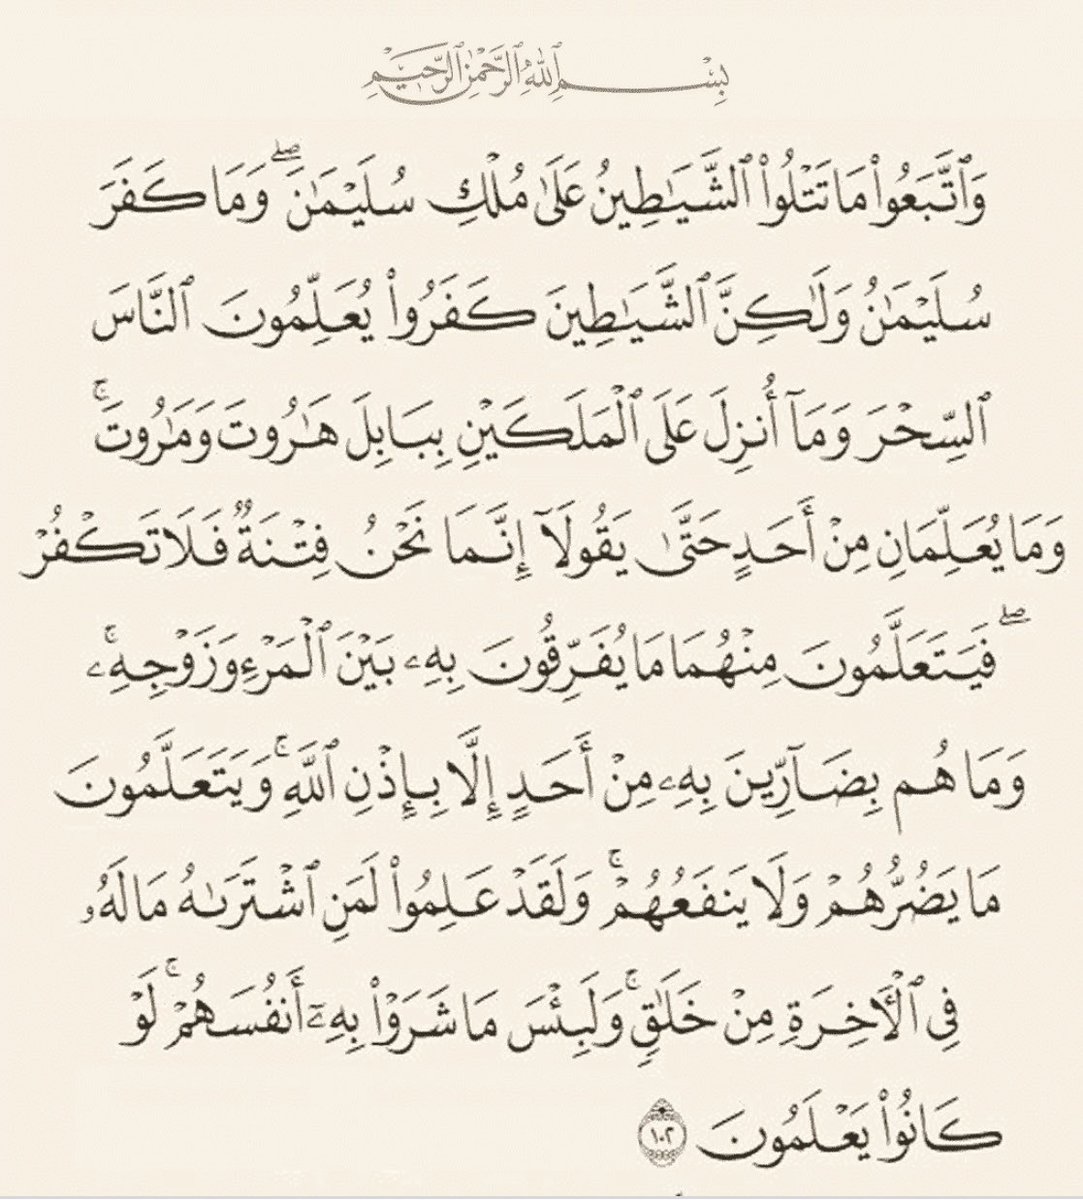 بِسْمِ ٱللَّهِ ٱلرَّحْمَٰنِ ٱلرَّحِيمِ
وَٱتَّبَعُوا۟ مَا تَتْلُوا۟ ٱلشَّيَٰطِينُ عَلَىٰ مُلْكِ سُلَيْمَٰنَ ۖ وَمَا كَفَرَ
سُلَيْمَٰنُ وَلَٰكِنَّ ٱلشَّيَٰطِينَ كَفَرُوا۟ يُعَلِّمُونَ ٱلنَّاسَ
ٱلسِّحْرَ وَمَآ أُنزِلَ عَلَى ٱلْمَلَكَيْنِ بِبَابِلَ هَٰرُوتَ وَمَٰرُوتَ ۚ
وَمَا يُعَلِّمَانِ مِنْ أَحَدٍ حَتَّىٰ يَقُولَآ إِنَّمَا نَحْنُ فِتْنَةٌ فَلَا تَكْفُرْ
ۖ فَيَتَعَلَّمُونَ مِنْهُمَا مَا يُفَرِّقُونَ بِهِۦ بَيْنَ ٱلْمَرْءِ وَزَوْجِهِۦ ۚ
وَمَا هُم بِضَآرِّينَ بِهِۦ مِنْ أَحَدٍ إِلَّا بِإِذْنِ ٱللَّهِ ۚ وَيَتَعَلَّمُونَ
مَا يَضُرُّهُمْ وَلَا يَنفَعُهُمْ ۚ وَلَقَدْ عَلِمُوا۟ لَمَنِ ٱشْتَرَىٰهُ مَا لَهُۥ
فِى ٱلْءَاخِرَةِ مِنْ خَلَٰقٍ ۚ وَلَبِئْسَ مَا شَرَوْا۟ بِهِۦٓ أَنفُسَهُمْ ۚ لَوْ
كَانُوا۟ يَعْلَمُونَ ١٠٢